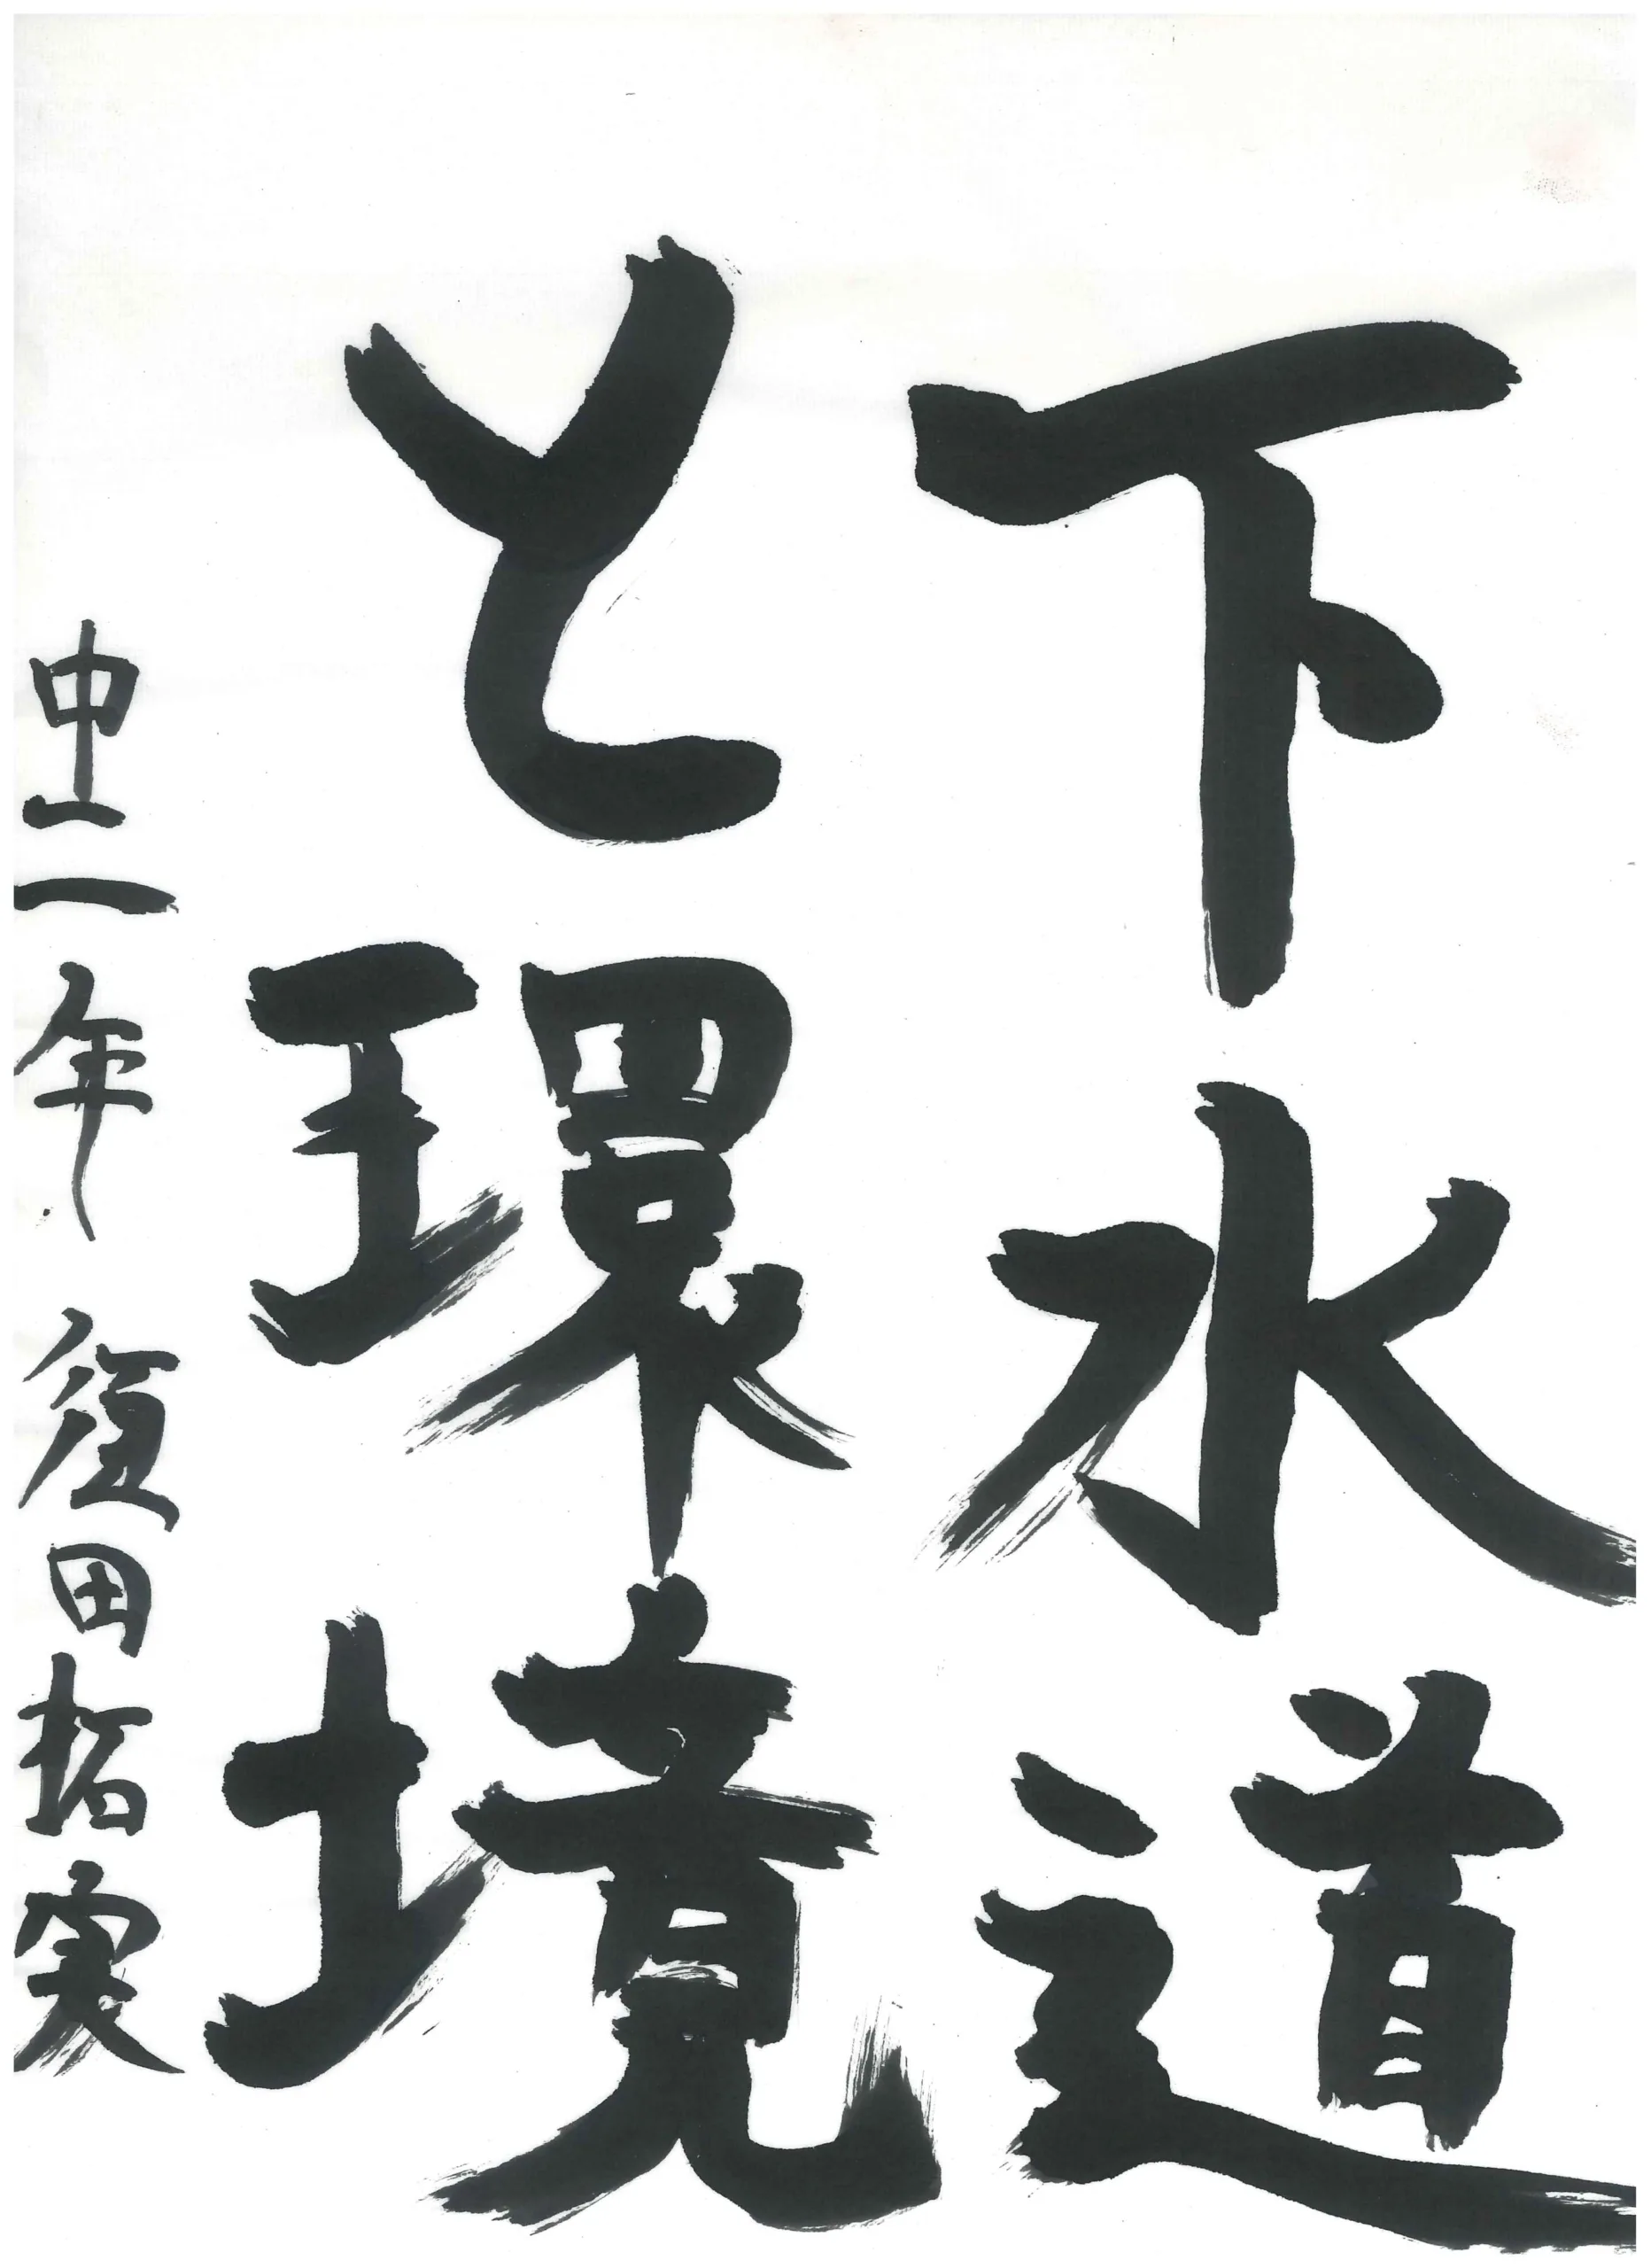 下水道
と環境
中二年 須田拓実